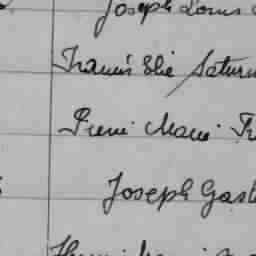 Joseph Louis
Francis Elie Satur
Pierre Marie Fr
Joseph Gast